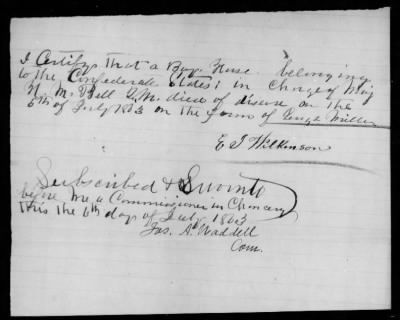 I Certify that a Bay Horse belonging
to the Confederate States; in charge of Maj
H. M. Bell Q.M. died of disease on the
5th of July 1863 on the farm of Miller
E J Wilkinson
Subscribed & Sworn to
before me a Commissioner in Chancery
this the 6th day of July 1863
Jas. A Waddell
Com.